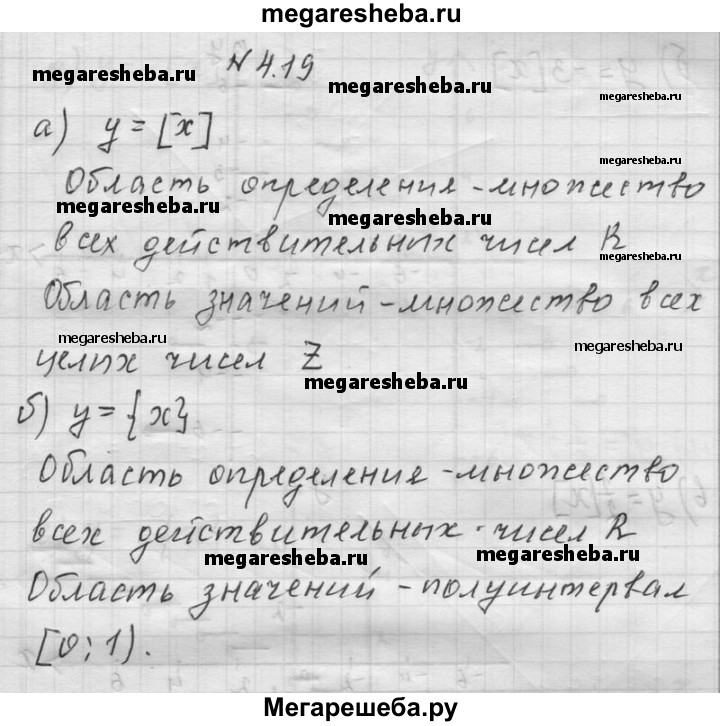 megaresheba.ru
№ 4.19
megaresheba.ru
megaresheba.ru
megaresheba.ru
а) y = [x]
megaresheba.ru
Область определения - множество
megaresheba.ru
megaresheba.ru
всех действительных чисел R
Область значений - множество всех
megaresheba.ru
megaresheba.ru
целых чисел Z
megaresheba.ru
б) y = {x}
Область определения - множество
всех действительных чисел R
megaresheba.ru
megaresheba.ru
Область значений - полуинтервал
[0; 1).
Мегарешеба.ру